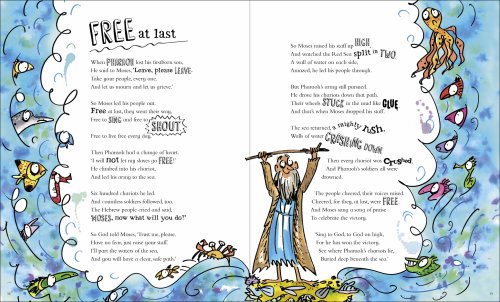 FREE at last
When PHARAOH lost his firstborn son,
He said to Moses, 'Leave, please LEAVE.
Take your people, every one,
And let us mourn and let us grieve.'
So Moses led his people out.
Free at last, they went their way,
Free to SING and free to SHOUT,
Free to live free every day.
Then Pharaoh had a change of heart.
'I will not let my slaves go FREE!'
He climbed into his chariot,
And led his army to the sea.
Six hundred chariots he led.
And countless soldiers followed, too.
The Hebrew people cried and said,
'MOSES, now what will you do?'
So God told Moses, 'Trust me, please.
Have no fear, just raise your staff.
I'll part the waters of the sea,
And you will have a clear, safe path.'
So Moses raised his staff up HIGH,
And watched the Red Sea split in TWO.
A wall of water on each side,
Amazed, he led his people through.
But Pharaoh's army still pursued.
He drove his chariots down that path.
Their wheels STUCK in the mud like GLUE
And that's when Moses dropped his staff.
The sea returned, a mighty rush,
Walls of water CRASHING DOWN
Then every chariot was Crushed,
And Pharaoh's soldiers all were
drowned.
The people cheered, their voices raised.
Cheered, for they, at last, were FREE.
And Moses sang a song of praise
To celebrate the victory.
'Sing to God, to God on high,
For he has won the victory.
See where Pharaoh's chariots lie,
Buried deep beneath the sea.'